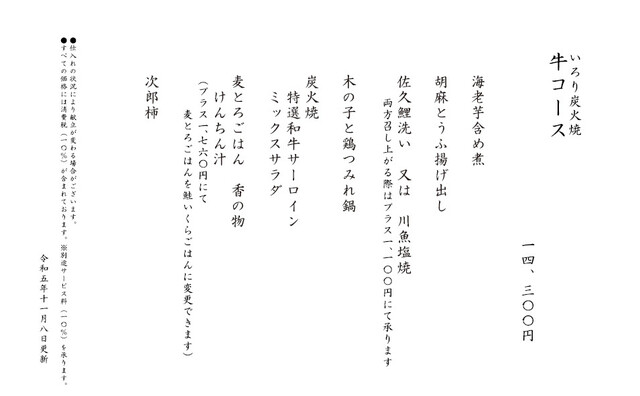 いろり炭火焼
牛コース
一四、三〇〇円
海老芋含め煮
胡麻とうふ揚げ出し
佐久鯉洗い 又は 川魚塩焼
両方召し上がる際はプラス一、一〇〇円にて承ります
木の子と鶏つみれ鍋
炭火焼
特選和牛サーロイン
ミックスサラダ
麦とろごはん 香の物
けんちん汁
(プラス一、七六〇円にて
麦とろごはんを鮭いくらごはんに変更できます)
次郎柿
●仕入れの状況により献立が変わる場合がございます。
●すべての価格には消費税(一〇%)が含まれております。 ※別途サービス料(一〇%)を承ります。
令和五年十一月八日更新